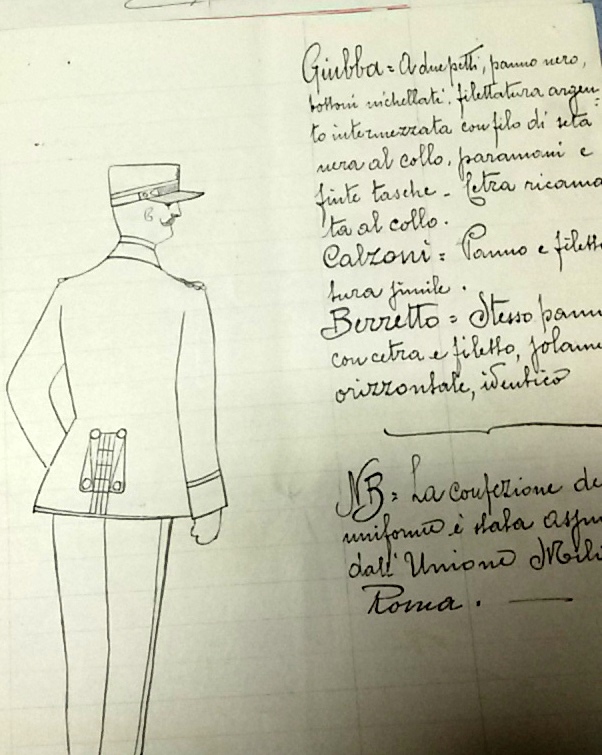 Giubba = A due petti, panno nero,
bottoni nichellati, filettatura argen-
to intermezzata con filo di seta
nera al collo, paramani e
finte tasche - Cetra ricama
ta al collo.
Calzoni = Panno e filetta
tura simile.
Berretto = Stesso pann
con cetra e filetto,
orizzontale, identico
NB = La confezione de
uniforme è stata assu
dall'Unione Mili
Roma. —